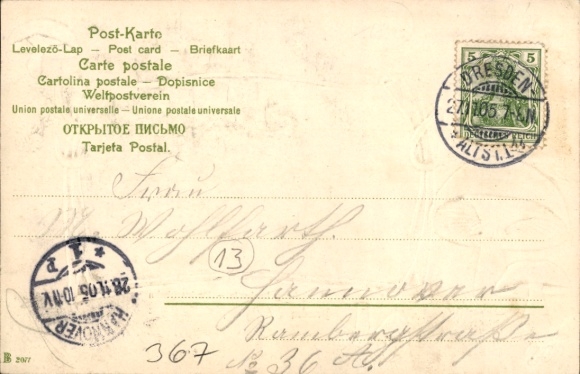 Post-Karte
Levelező-Lap – Post card – Briefkaart
Carte postale
Cartolina postale – Dopisnice
Weltpostverein
Union postale universelle – Unione postale universale
ОТКРЫТОЕ ПИСЬМО
Tarjeta Postal.
5 5
DRESDEN
27.11.05. 7-8N
ALTST. 1
DEUTSCHES REICH
Frau
M. Wohlfarth.
13
Hannover
Rambergstraße
No 36 A.
* 1 *
P
28.11.05. 10-11V.
HANNOVER
367
2077